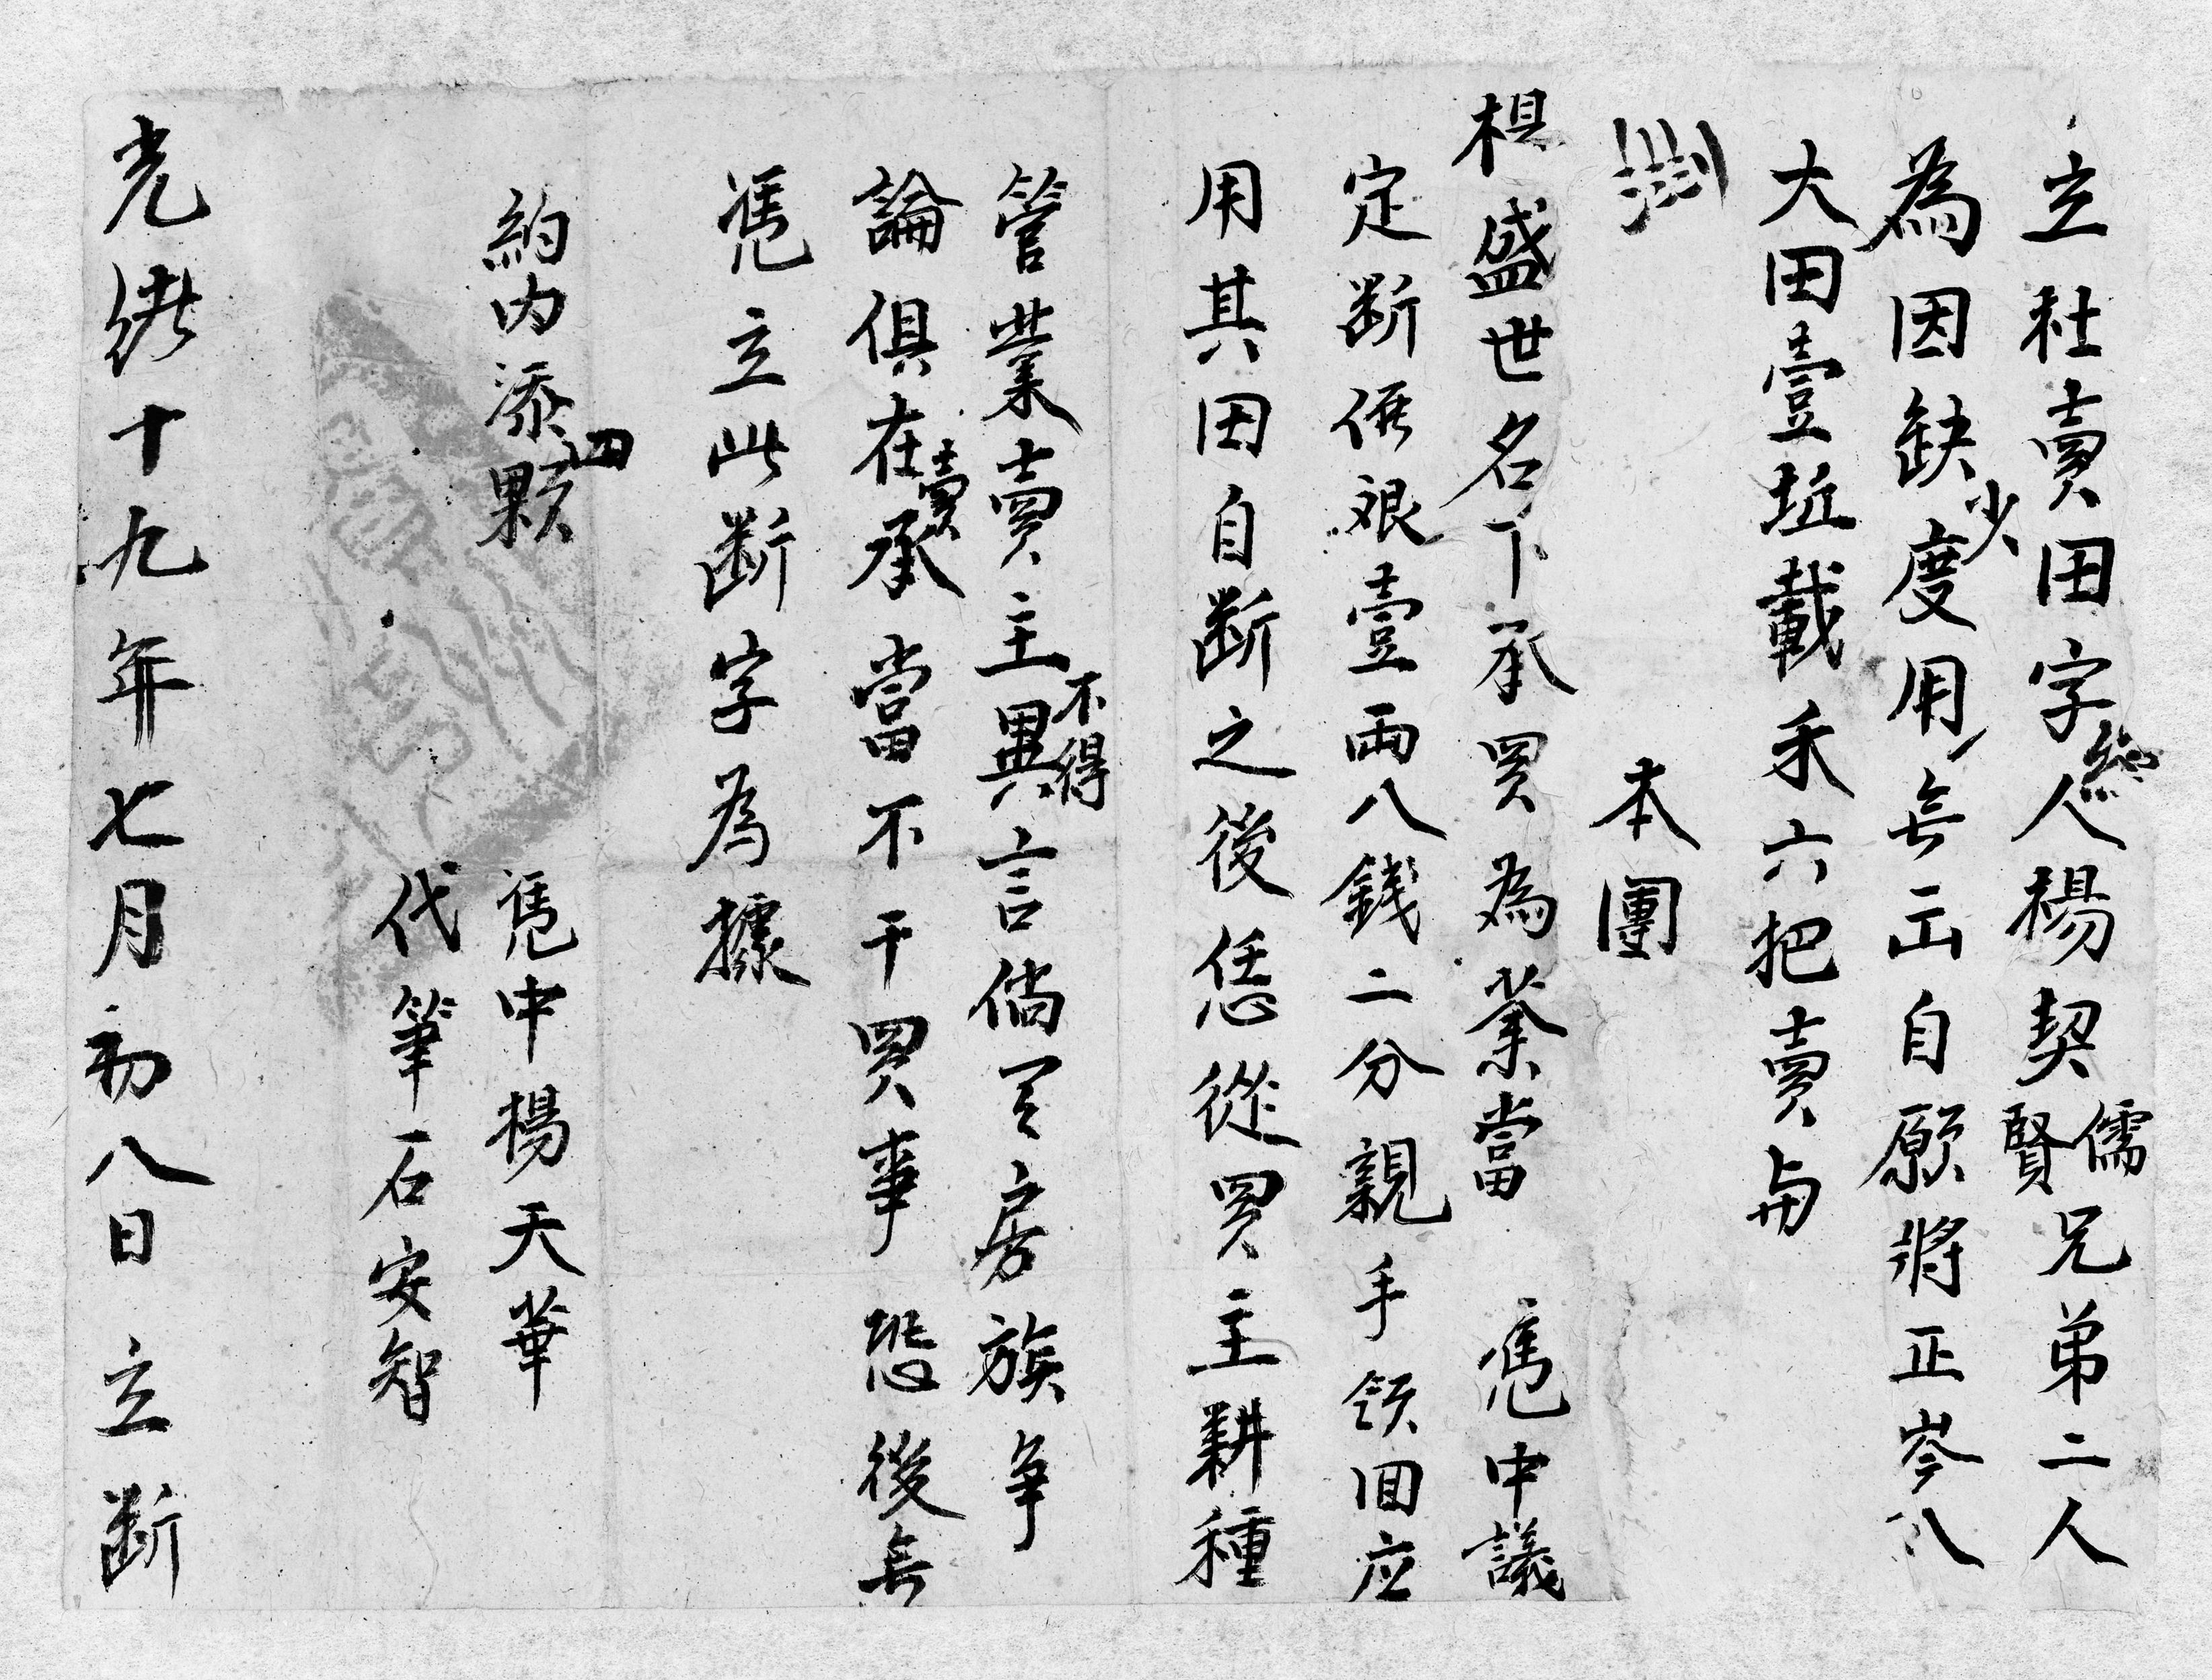 立杜賣田字人楊契儒賢兄弟二人
為因缺少度用無出自願將正岑八
大田壹坵載禾六把賣与
本團
楊盛世名下承買為業當憑中議
定断價艮壹両八錢二分親手領回应
用其田自断之後恁從買主耕種
管業賣主不得異言倘有房族争
論俱在賣承當不干買事恐後無
憑立此断字為據
約内添四顆
憑中楊天華
代筆石安智
光緒十九年七月初八日立断